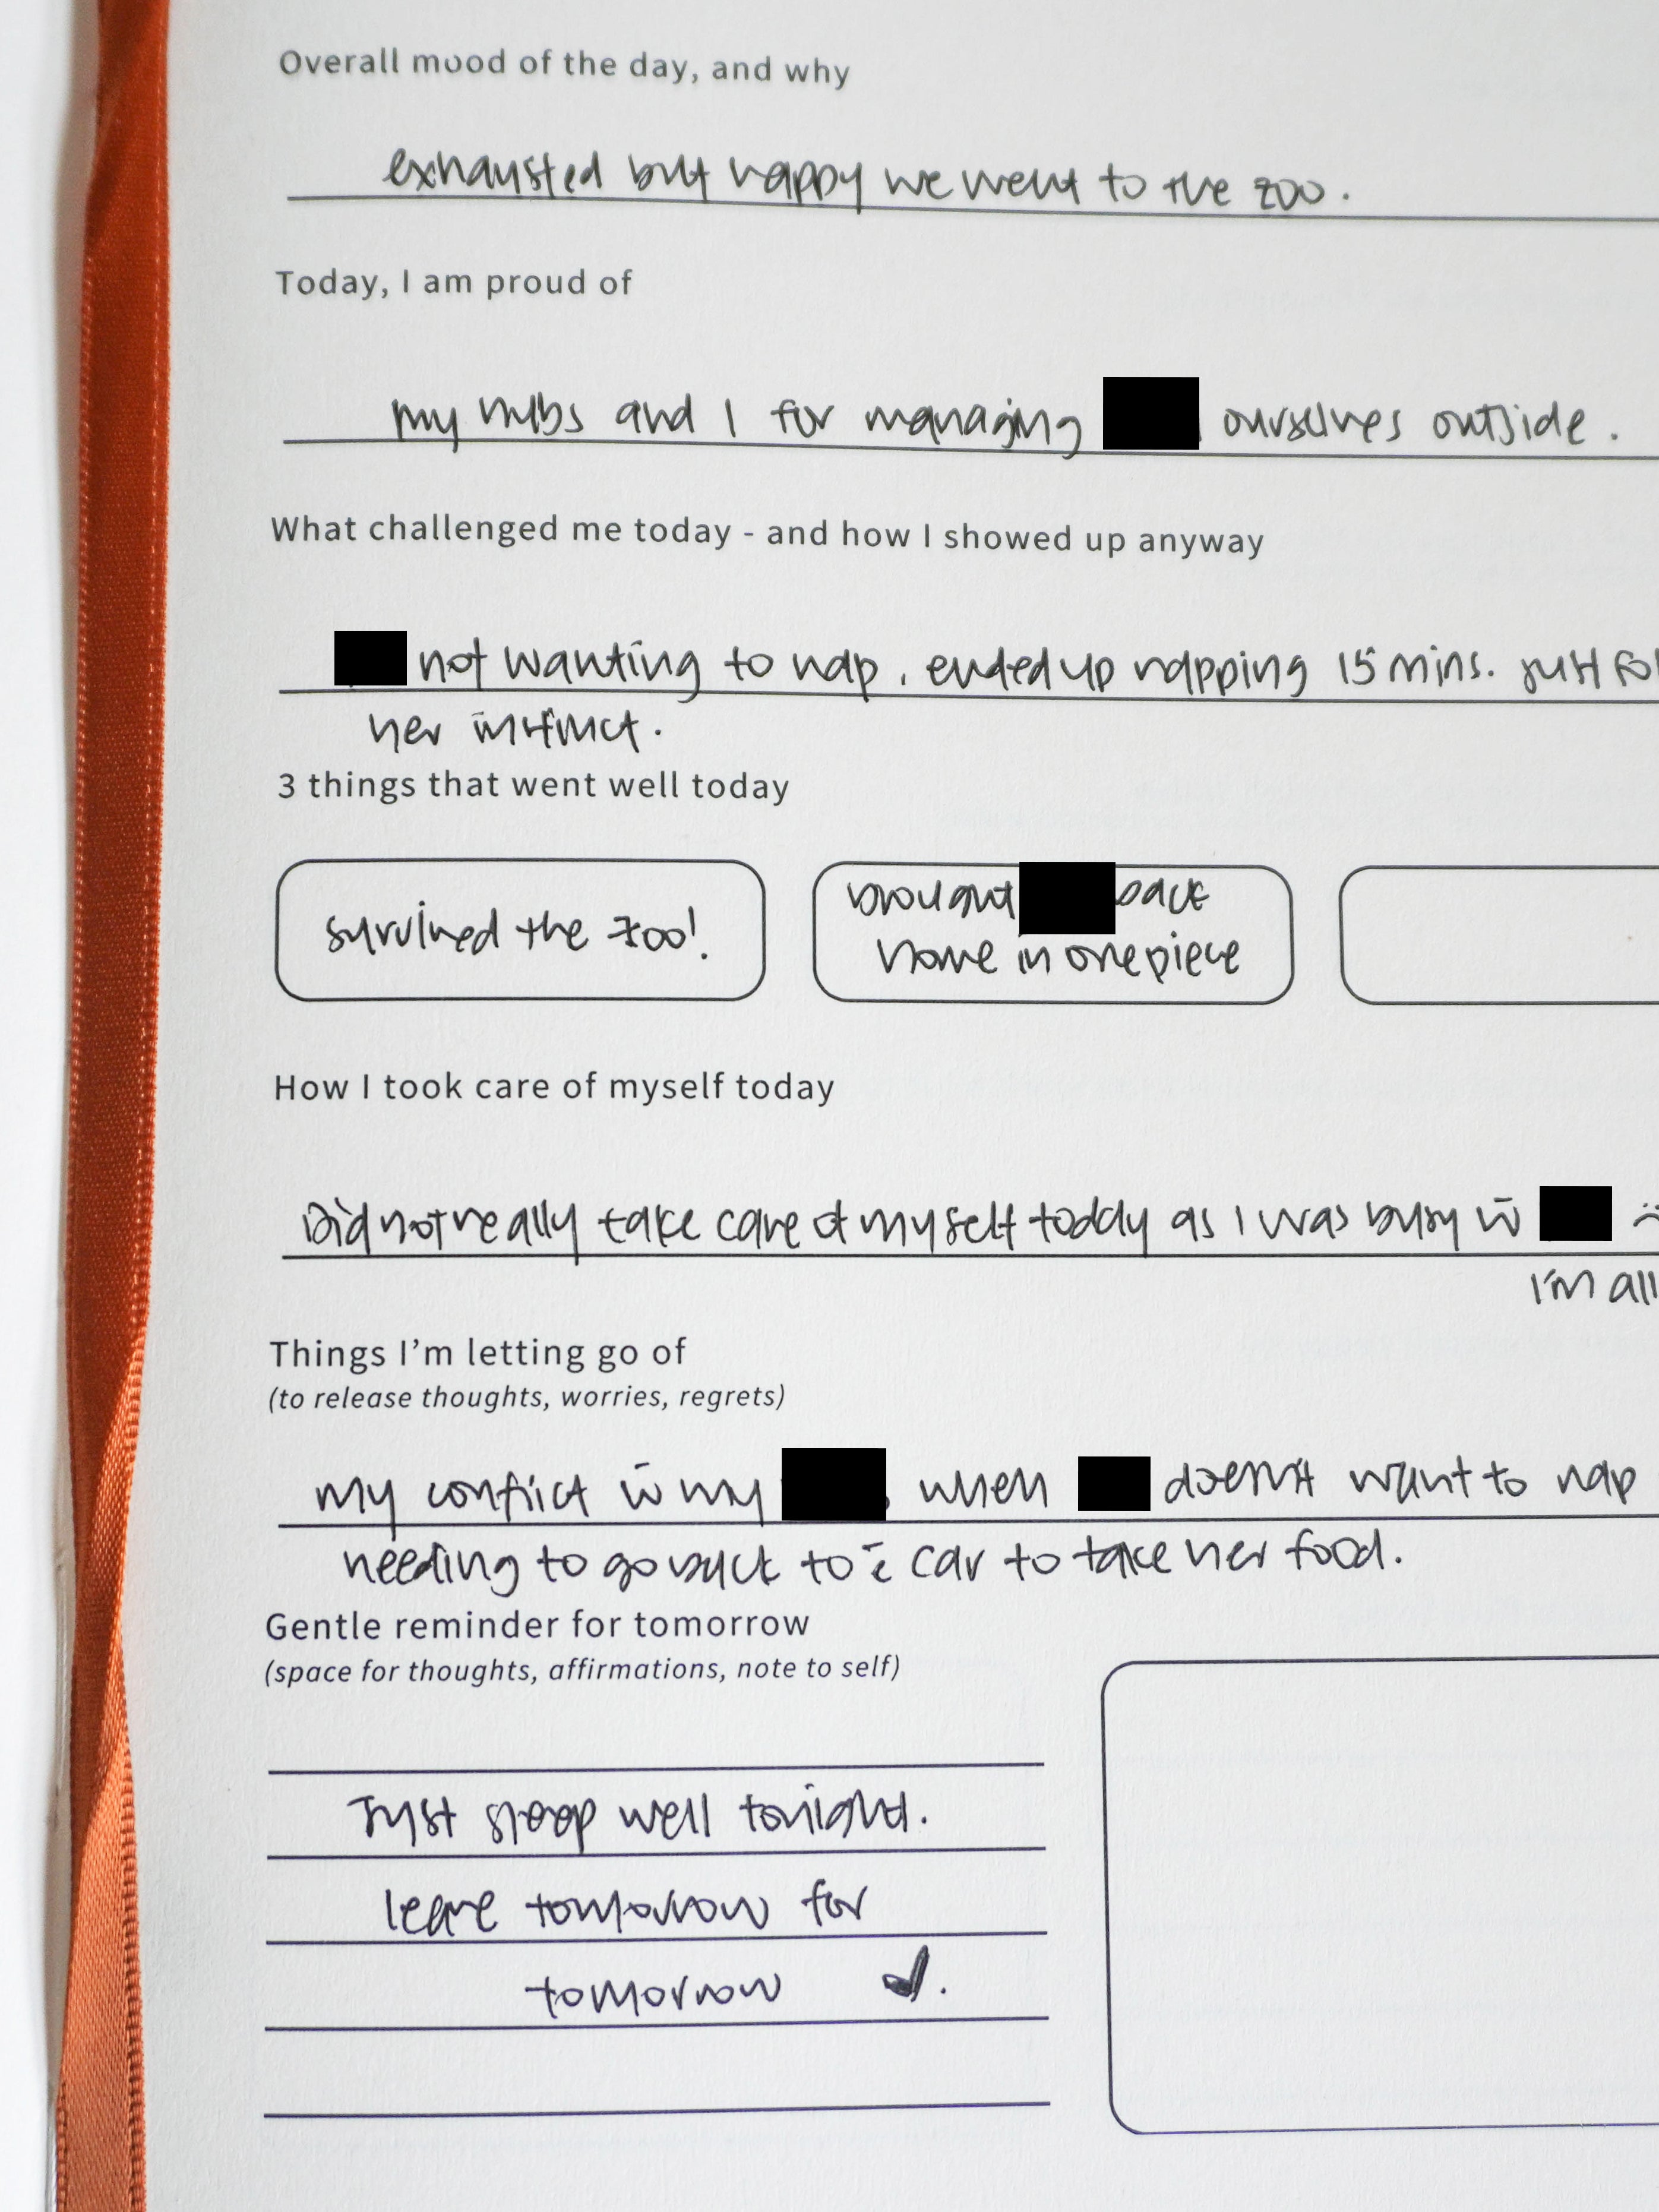 Overall mood of the day, and why
exhausted but happy we went to the zoo.
Today, I am proud of
my hubs and I for managing ourselves outside.
What challenged me today - and how I showed up anyway
not wanting to nap, ended up napping 15 mins. just fol
her instinct.
3 things that went well today
survived the zoo!
brought back
home in one piece
How I took care of myself today
Did not really take care of myself today as I was busy w̄
I'm all
Things I'm letting go of
(to release thoughts, worries, regrets)
my conflict w̄ my when doesn't want to nap
needing to go back to car to take her food.
Gentle reminder for tomorrow
(space for thoughts, affirmations, note to self)
Just sleep well tonight.
leave tomorrow for
tomorrow